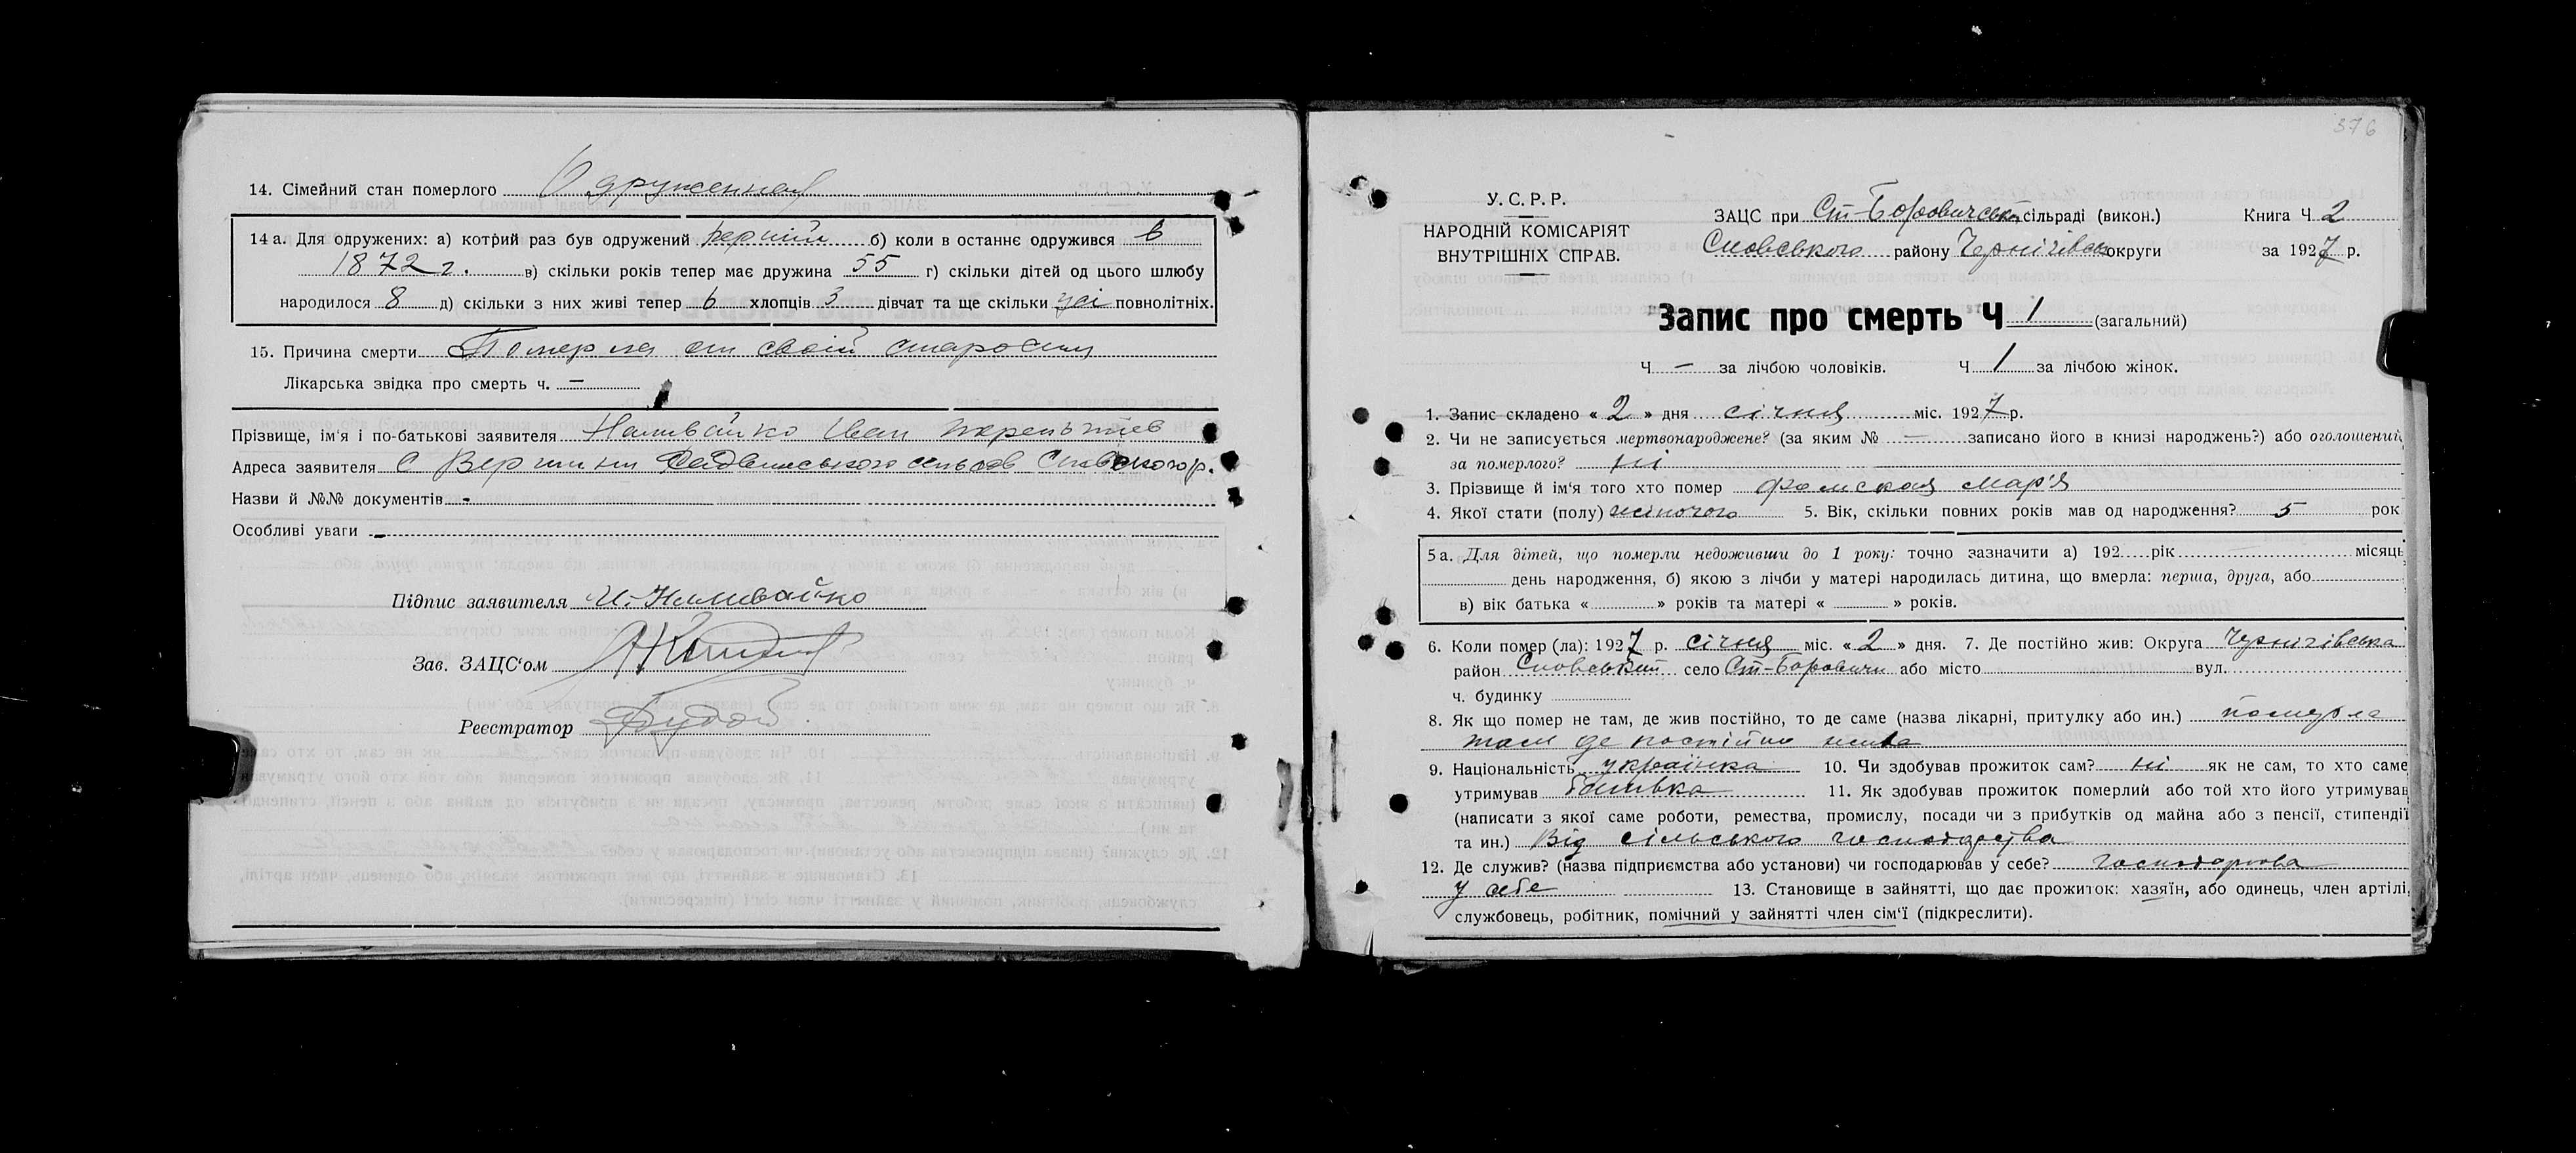 14. Сімейний стан померлого Одруженная
14 а. Для одружених: а) котрий раз був одружений перший б) коли в останнє одружився в
1872 г. в) скільки років тепер має дружина 55 г) скільки дітей од цього шлюбу
народилося 8 д) скільки з них живі тепер 6 хлопців 3 дівчат та ще скільки усі повнолітніх.
15. Причина смерти Померла от своій старости
Лікарська звідка про смерть ч. —
Прізвище, ім'я і по-батькові заявителя Наливайко Иван
Адреса заявителя С Вершини сельсов Сновского р.
Назви й №№ документів -
Особливі уваги -
Підпис заявителя И. Наливайко
Зав. ЗАЦС'ом
Реєстратор
376
У. С. Р. Р.
НАРОДНІЙ КОМІСАРІЯТ
ВНУТРІШНІХ СПРАВ.
ЗАЦС при Ст-Боровичській сільраді (викон.) Книга Ч 2
Сновського району Чернігівськ округи за 1927 р.
Запис про смерть Ч 1 (загальний)
Ч — за лічбою чоловиків. Ч 1 за лічбою жінок.
1. Запис складено « 2 » дня січня міс. 1927 р.
2. Чи не записується мертвонароджене? (за яким № — записано його в книзі народжень?) або оголошений
за померлого? ні
3. Прізвище й ім'я того хто помер Фомская Мар'я
4. Якої стати (полу) жіночого 5. Вік, скільки повних років мав од народження? 5 рок
5 а. Для дітей, що померли недоживши до 1 року: точно зазначити а) 192 рік — місяць
день народження, б) якою з лічби у матері народилась дитина, що вмерла: перша, друга, або
в) вік батька « » років та матері « » років.
6. Коли помер (ла): 1927 р. січня міс. « 2 » дня. 7. Де постійно жив: Округа Чернігівська
район Сновський село Ст-Боровичи або місто вул.
ч. будинку
8. Як що помер не там, де жив постійно, то де саме (назва лікарні, притулку або ин.) померла
там де постійно жила
9. Національність українка 10. Чи здобував прожиток сам? ні як не сам, то хто саме
утримував батько 11. Як здобував прожиток померлий або той хто його утримував
(написати з якої саме роботи, ремества, промислу, посади чи з прибутків од майна або з пенсії, стипендії
та ин.) Від сільського господарства
12. Де служив? (назва підприємства або установи) чи господарював у себе? господарював
у себе 13. Становище в зайнятті, що дає прожиток: хазяїн, або одинець, член артілі,
службовець, робітник, помічний у зайнятті член сім'ї (підкреслити).